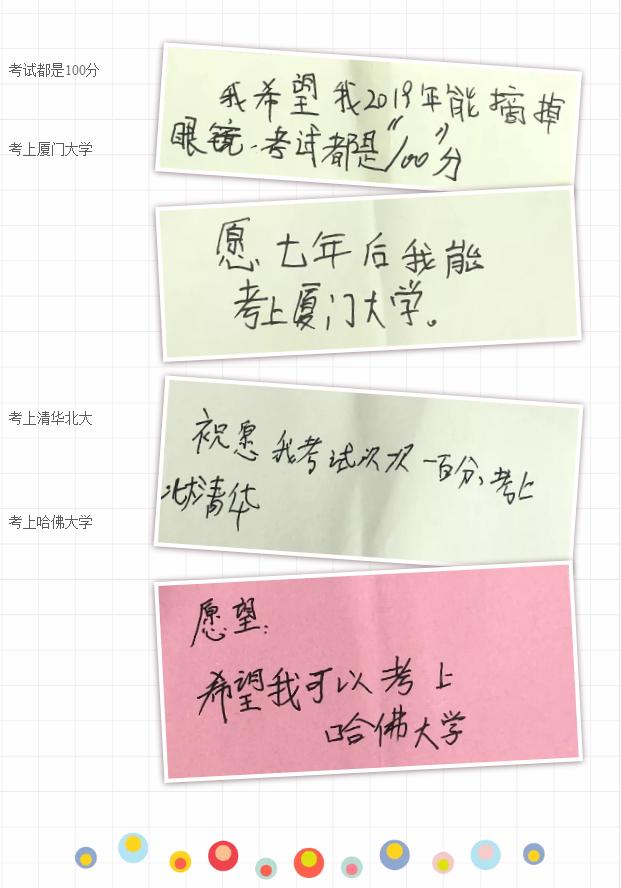 考试都是100分
我希望我2019年能摘掉
眼镜、考试都是“100”分
考上厦门大学
愿七年后我能
考上厦门大学。
考上清华北大
祝愿我考试次次一百分、考上
北大清华
考上哈佛大学
愿望：
希望我可以考上
哈佛大学